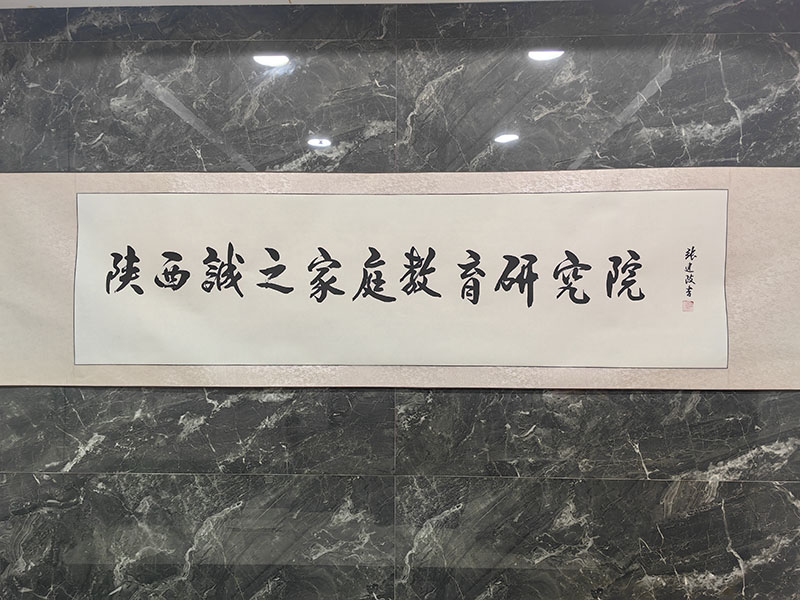 陕西誠之家庭教育研究院
张建政書